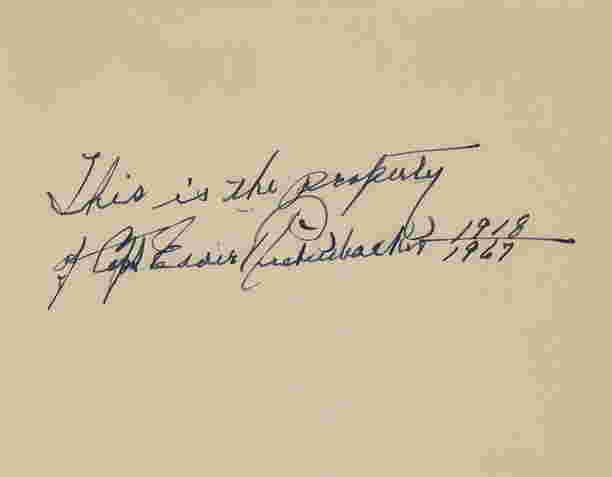 This is the property
of Capt Eddie Rickenbacker 1918
1967